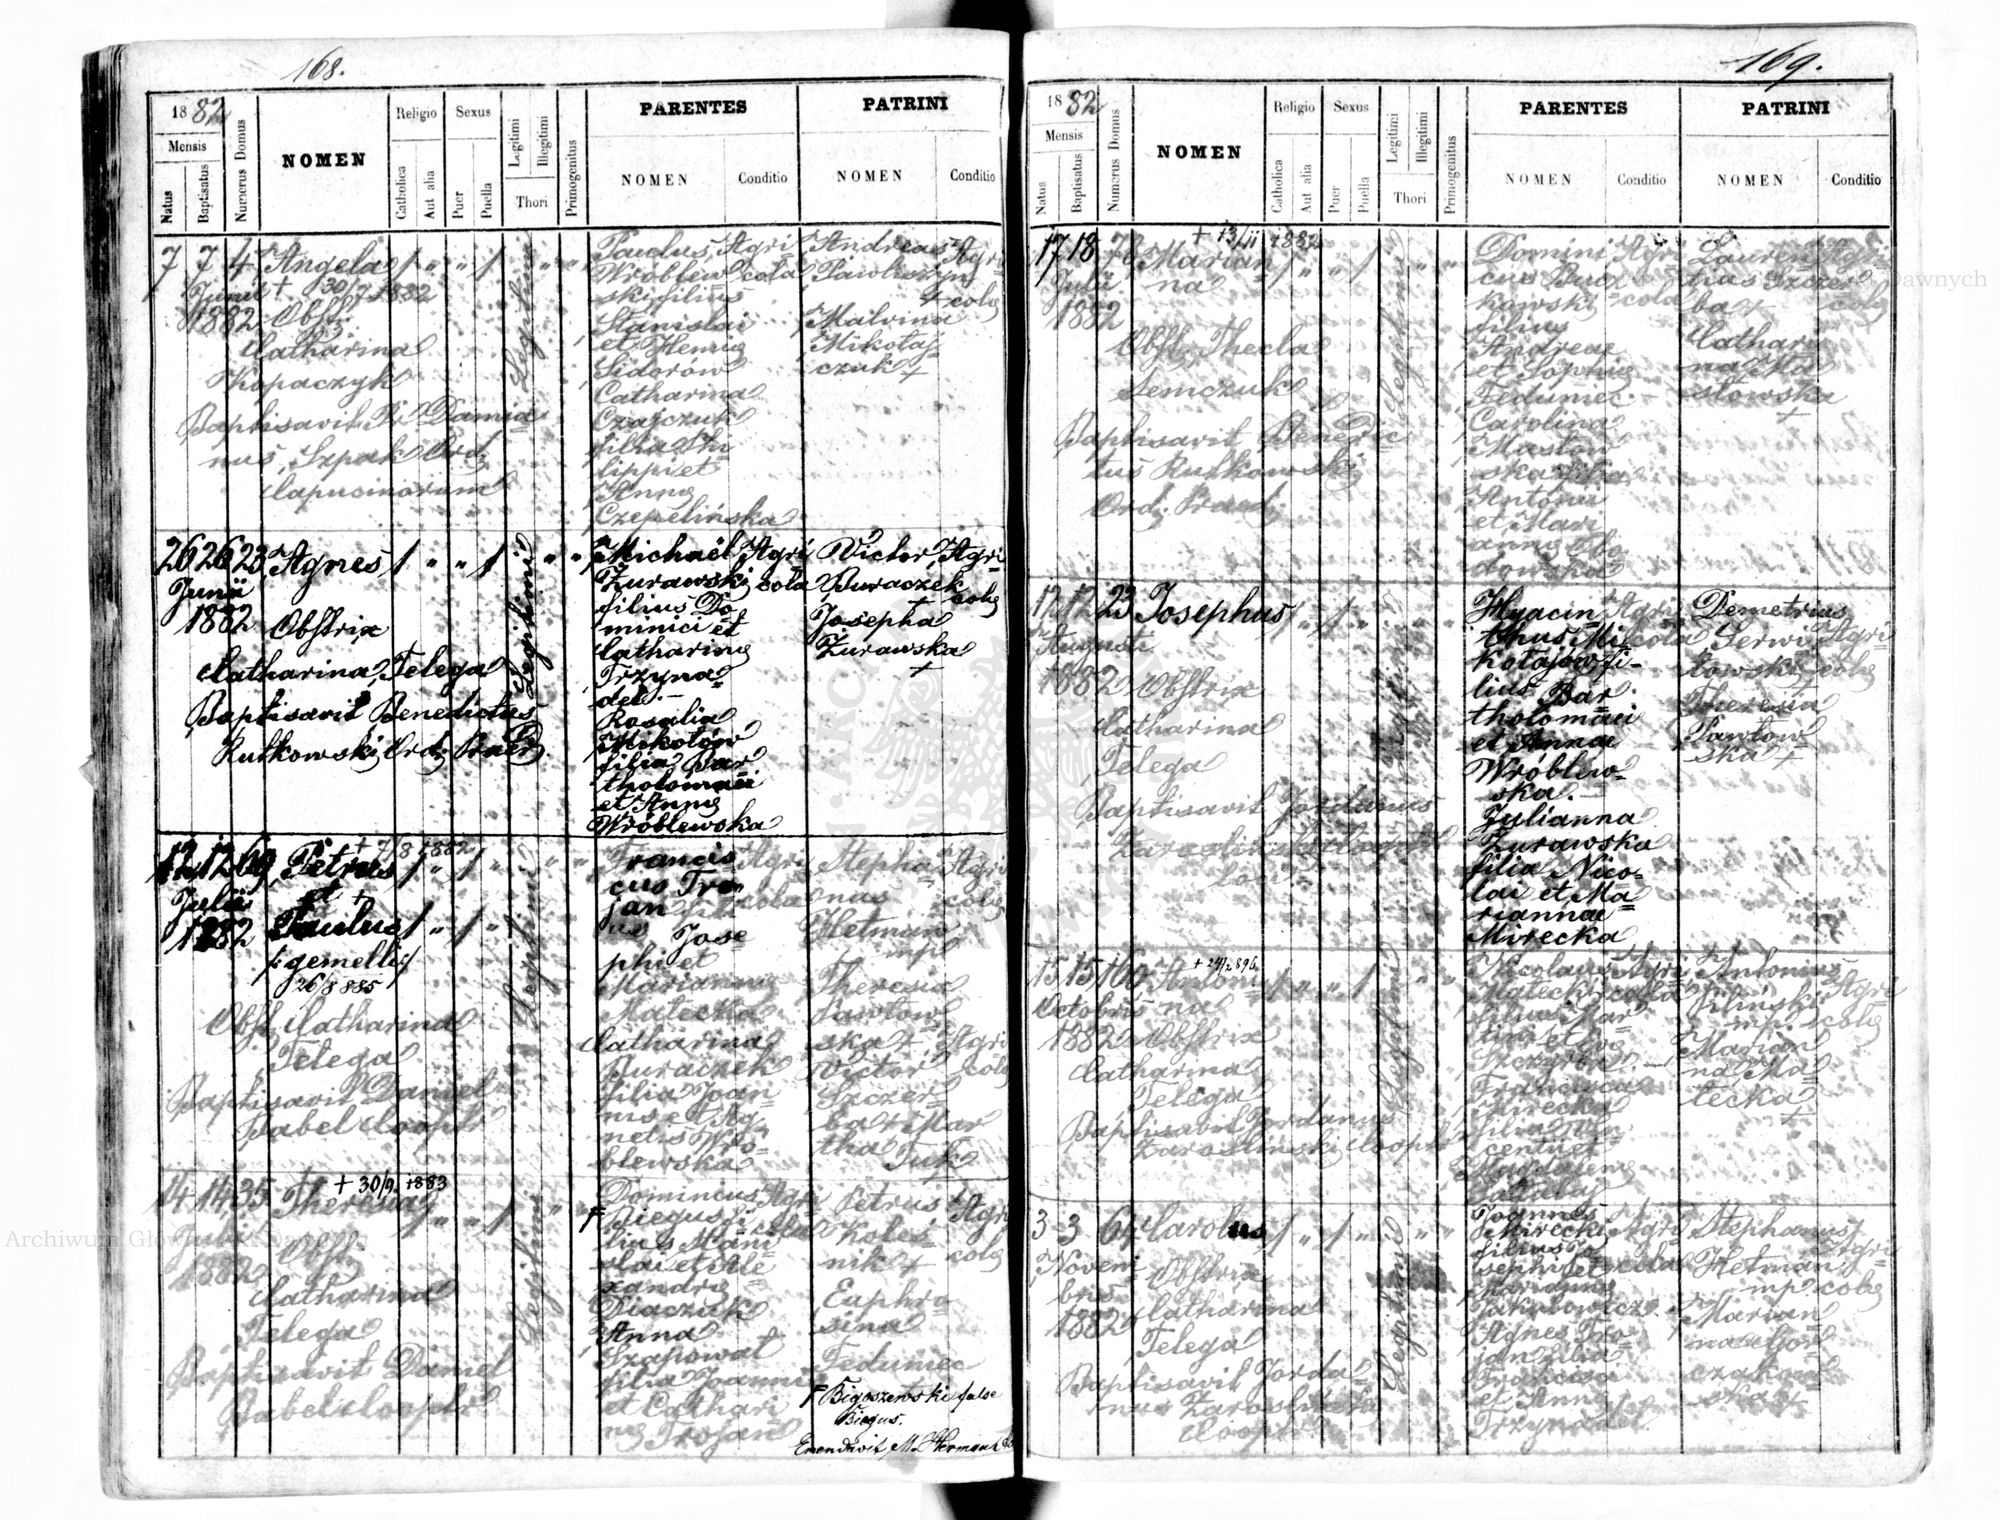 168.
1882
Mensis
Natus
Baptisatus
Numerus Domus
NOMEN
Religio
Catholica
Aut alia
Sexus
Puer
Puella
Legitimi
Illegitimi
Thori
Primogenitus
PARENTES
NOMEN
Conditio
PATRINI
NOMEN
Conditio
7 7 4 Angela
Junii + 30/7 1882
1882 Obst.
Catharina
Kopaczyk
Baptisavit Damia
nus Szpak Ord.
Capucinorum
Legitimi
Paulus
Wróblew
ski filius
Stanislai
et Henric
Sidorow
Catharina
Czajczuk
filia Phi
lippi et
Anna
Czepelińska
Agri
cola
Andreas
Pawliszyn
+
Malvina
Mikołaj
czuk +
Agri
cola
26 26 23 Agnes
Junii
1882 Obstrix
Catharina Telega
Baptisavit Benedictus
Rutkowski Ord. Praed.
Legitimi
Michaël
Żurawski
filius Do
minici et
Catharina
Trzyna
del.
Rosalia
Mikołów
filia Bar
tholomaei
et Anna
Wróblewska
Agri
cola
Victor
Buraczek
+
Josepha
Żurawska
+
Agri
cola
12 12 69 Petrus
+ 7/8 1882
Julii et +
1882 Paulus
gemelli
26/8 885
Obst. Catharina
Telega
Baptisavit Daniel
Babel Cooptr
Legitimi
Francis
cus Tro
jan fili
us Jose
phi et
Marianna
Matecka
Catharina
Buraczek
filia Joan
nis et Ag
netis Wró
blewska
Agri
cola
Stepha
nus
Hetman
mp
Theresia
Pawłow
ska +
Victor
Szczer
ba + Mar
tha
Tuk
Agri
cola
Agri
cola
14 14 35 Theresia
+ 30/9 1883
Julii
1882 Obst.
Catharina
Telega
Baptisavit Daniel
Babel Cooptr
Legitimi
Dominicus
Biegus fi
lius Stani
slai et Ale
xandra
Diaczuk
Anna
Szapował
filia Joannis
et Cathari
na Trojan
Agri
cola
Petrus
Koleś
nik +
Euphro
sina
Fedumiec
Agri
cola
Bigoszewski false
Biegus.
Emendavit M. Hermann
169.
1882
Mensis
Natus
Baptisatus
Numerus Domus
NOMEN
Religio
Catholica
Aut alia
Sexus
Puer
Puella
Legitimi
Illegitimi
Thori
Primogenitus
PARENTES
NOMEN
Conditio
PATRINI
NOMEN
Conditio
17 18 Marian
+ 13/11 1882
Julii na
1882
Obst. Thecla
Semczuk
Baptisavit Benedic
tus Rutkowski
Ord. Praed.
Legitimi
Domini
cus Bucz
kowski
filius
Andreae
et Sophia
Fedumiec
Carolina
Masłow
ska filia
Antonii
et Mari
anna
Agri
cola
Lauren
tius Szczer
ba +
Cathari
na Ma
słowska
+
Agri
cola
12 12 23 Josephus
Augusti
1882 Obstrix
Catharina
Telega
Baptisavit Jordanus
Legitimi
Hyacin
thus Mi
kołajów fi
lius Bar
tholomaei
et Annae
Wróblew
ska.
Julianna
Żurawska
filia Nico
lai et Ma
riannae
Mirecka
Agri
cola
Demetrius
Serwi
towski
+
Theresia
Pawłow
ska +
Agri
cola
15 15 160 Antoni
+ 24/2 896
Octobris na
1882 Obstrix
Catharina
Telega
Baptisavit Jordanus
Zarosliński Cooptr
Legitimi
Nicolaus
Matecki
filius Mar
tini et Eva
Szczyrba
Francisca
Mirecka
filia Vin
centii et
Magdalena
Agri
cola
Antonius
Biliński
mp.
Marian
na Ma
tecka
+
Agri
cola
3 3 64 Carolus
Novem
bris Obstrix
1882 Catharina
Telega
Baptisavit Jorda
nus Zarosliński
Cooptr
Legitimi
Joannes
Mirecki
filius Jo
sephi et
Marianna
Jakubowicz
Agnes Tro
jan filia
Francisca
et Anna
Trzynadel
Agri
cola
Stephanus
Hetman
mp
Marian
na Gor
czakow
ska +
Agri
cola
Archiwum Główne Akt Dawnych